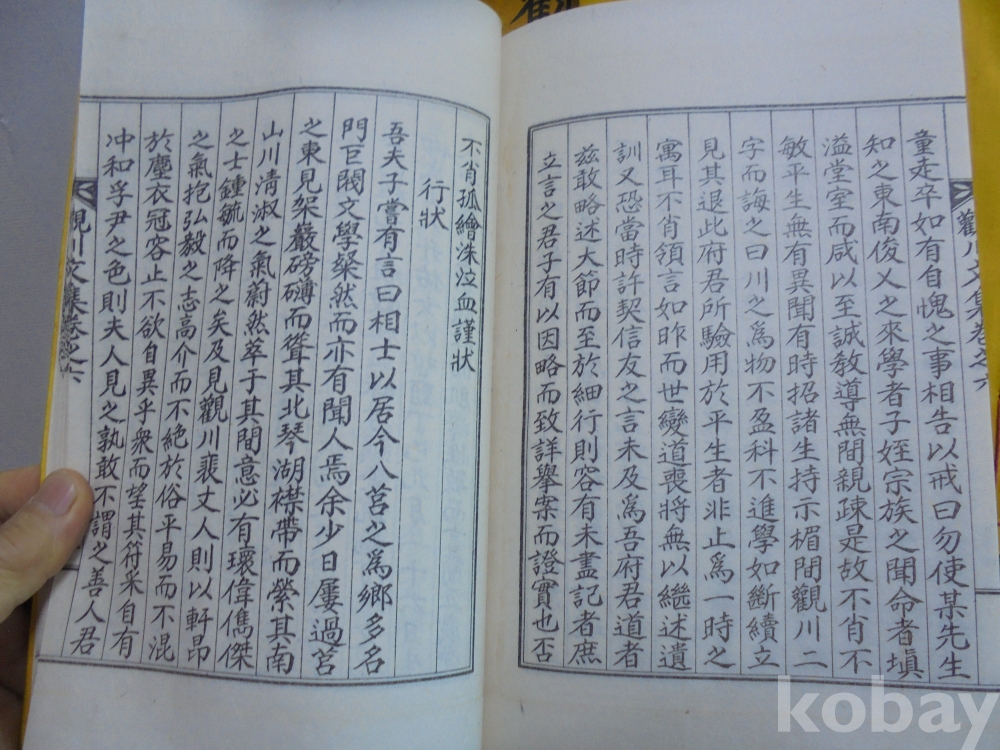 童走卒如有自愧之事相告以戒曰勿使某先生
知之東南俊乂之來學者子姪宗族之聞命者塡
溢堂室而咸以至誠敎導無間親疎是故不肖不
敏平生無有異聞有時招諸生持示楣間觀川二
字而誨之曰川之爲物不盈科不進學如斷續立
見其退此府君所驗用於平生者非止爲一時之
寓耳不肖領言如昨而世變道喪將無以繼述遺
訓又恐當時許契信友之言未及爲吾府君道者
玆敢略述大節而至於細行則容有未盡記者庶
立言之君子有以因略而致詳擧案而證實也否
觀川文集卷之六
不肖孤繪洙泣血謹狀
行狀
吾夫子嘗有言曰相士以居今八莒之爲鄕多名
門巨閥文學粲然而亦有聞人焉余少日屢過莒
之東見架巖磅礴而聳其北琴湖襟帶而縈其南
山川淸淑之氣蔚然萃于其間意必有瓌偉儁傑
之士鍾毓而降之矣及見觀川裴丈人則以軒昂
之氣抱弘毅之志高介而不絕於俗平易而不混
於塵衣冠容止不欲自異乎衆而望其符采自有
冲和孚尹之色則夫人見之孰敢不謂之善人君
觀川文集卷之六
kobay